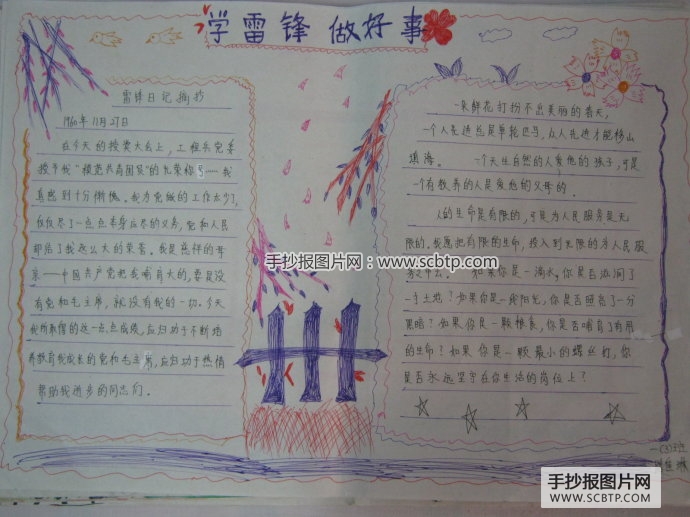 学雷锋 做好事
雷锋日记摘抄
1960年11月27日
在今天的授奖大会上，工程兵党委
授予我“模范共青团员”的光荣称号……我
真感到十分惭愧。我为党做的工作太少了，
仅仅尽了一点点本身应尽的义务，党和人民
却给了我这么大的荣誉。我是慈祥的母
亲——中国共产党把我哺育大的，要是没
有党和毛主席，就没有我的一切。今天
我所取得的这一点点成绩，应归功于不断培
养教育我成长的党和毛主席，应归功于热情
帮助我进步的同志们。
一朵鲜花打扮不出美丽的春天，
一个人先进总是单轮匹马，众人先进才能移山
填海。 一个天生自然的人爱他的孩子，可是
一个有教养的人是爱他的父母的.
人的生命是有限的，可是为人民服务是无
限的。我愿把有限的生命，投入到无限的为人民服
务之中去。 如果你是一滴水，你是否滋润了
一寸土地？如果你是一线阳光，你是否照亮了一分
黑暗？如果你是一颗粮食，你是否哺育了有用
的生命？如果你是一颗最小的螺丝钉，你
是否永远坚守在你生活的岗位上？
手抄报图片网：www.scbtp.com
手抄报图片网
WWW.SCBTP.COM